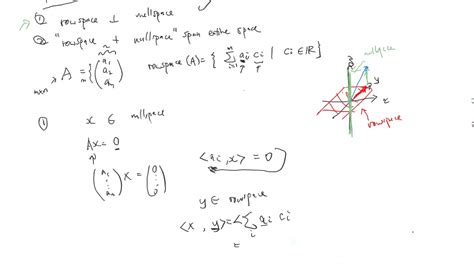 ① rowspace ⊥ nullspace
② "rowspace + nullspace" span entire space
A = { ( a₁ a₂ aₙ )
m×n
rowspace (A) = { Σ aᵢ cᵢ | cᵢ ∈ ℝ }
nullspace
y
x
rowspace
① x ∈ nullspace
Ax = 0
( a₁ ⋮ aₙ ) x = ( 0 ⋮ 0 )
<aᵢ, x> = 0
y ∈ rowspace
<x, y> = <Σ aᵢ cᵢ
i
=